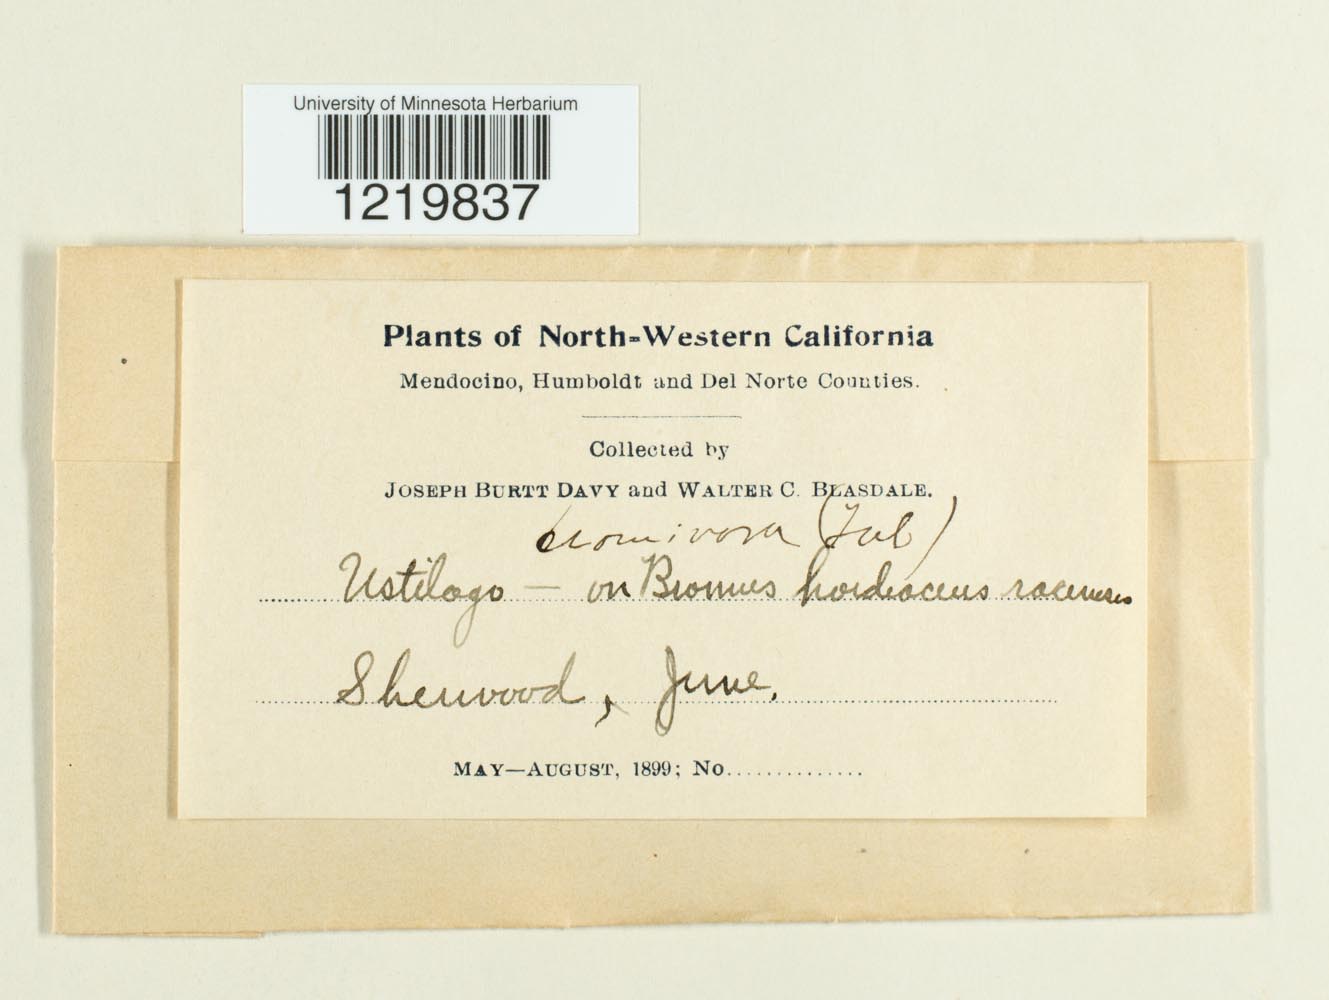 University of Minnesota Herbarium
1219837
Plants of North-Western California
Mendocino, Humboldt and Del Norte Counties.
Collected by
JOSEPH BURTT DAVY and WALTER C. BLASDALE.
bromivora (Tul)
Ustilago — on Bromus hordeaceus racemosus
Sherwood, June.
MAY—AUGUST, 1899; No..............